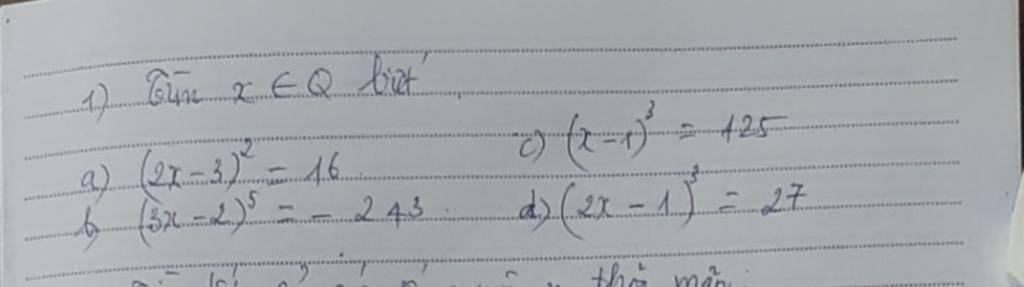 1) Tìm x ∈ Q biết
a) (2x-3)² = 16. c) (x-1)³ = 125
b) (3x-2)⁵ = - 243. d) (2x-1)³ = 27
thỏa mãn